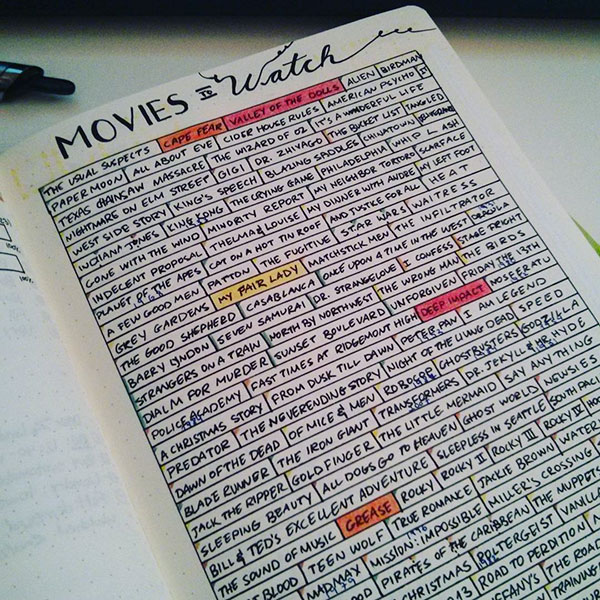 MOVIES TO Watch
THE USUAL SUSPECTS CAPE FEAR VALLEY OF THE DOLLS ALIEN BIRDMAN
PAPER MOON ALL ABOUT EVE CIDER HOUSE RULES AMERICAN PSYCHO
TEXAS CHAINSAW MASSACRE THE WIZARD OF OZ IT'S A WONDERFUL LIFE
NIGHTMARE ON ELM STREET GIGI DR. ZHIVAGO THE BUCKET LIST TANGLED
WEST SIDE STORY KING'S SPEECH BLAZING SADDLES CHINATOWN
INDIANA JONES KING KONG THE CRYING GAME PHILADELPHIA WHIPLASH
GONE WITH THE WIND MINORITY REPORT MY NEIGHBOR TOTORO SCARFACE
INDECENT PROPOSAL THELMA & LOUISE MY DINNER WITH ANDRE MY LEFT FOOT
PLANET OF THE APES CAT ON A HOT TIN ROOF AND JUSTICE FOR ALL HEAT
A FEW GOOD MEN PATTON THE FUGITIVE STAR WARS WAITRESS
GREY GARDENS MY FAIR LADY MATCHSTICK MEN THE INFILTRATOR
THE GOOD SHEPHERD CASABLANCA ONCE UPON A TIME IN THE WEST DRACULA
BARRY LYNDON SEVEN SAMURAI DR. STRANGELOVE I CONFESS STAGE FRIGHT
STRANGERS ON A TRAIN NORTH BY NORTHWEST THE WRONG MAN THE BIRDS
DIAL M FOR MURDER SUNSET BOULEVARD UNFORGIVEN FRIDAY THE 13TH
POLICE ACADEMY FAST TIMES AT RIDGEMONT HIGH DEEP IMPACT NOSFERATU
A CHRISTMAS STORY FROM DUSK TILL DAWN PETER PAN I AM LEGEND
PREDATOR THE NEVERENDING STORY NIGHT OF THE LIVING DEAD SPEED
DAWN OF THE DEAD OF MICE & MEN ROBOCOP GHOSTBUSTERS GODZILLA
BLADE RUNNER THE IRON GIANT TRANSFORMERS DR. JEKYLL & MR. HYDE
JACK THE RIPPER GOLDFINGER THE LITTLE MERMAID SAY ANYTHING
SLEEPING BEAUTY ALL DOGS GO TO HEAVEN GHOST WORLD NEWSIES
BILL & TED'S EXCELLENT ADVENTURE SLEEPLESS IN SEATTLE SOUTH PACI
THE SOUND OF MUSIC GREASE ROCKY ROCKY II ROCKY III ROCKY IV
BLOOD TEEN WOLF TRUE ROMANCE JACKIE BROWN WATER
MAD MAX MISSION: IMPOSSIBLE MILLER'S CROSSING
OOD PIRATES OF THE CARIBBEAN THE MUPPETS
CHRISTMAS POLTERGEIST VANILLA
13 ROAD TO PERDITION
FFANY'S THE ROAD
TRAINING